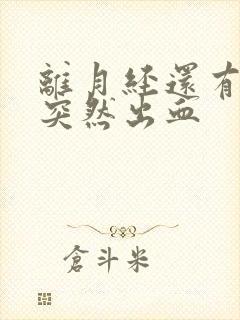 離月经還有
突然出血
倉斗米